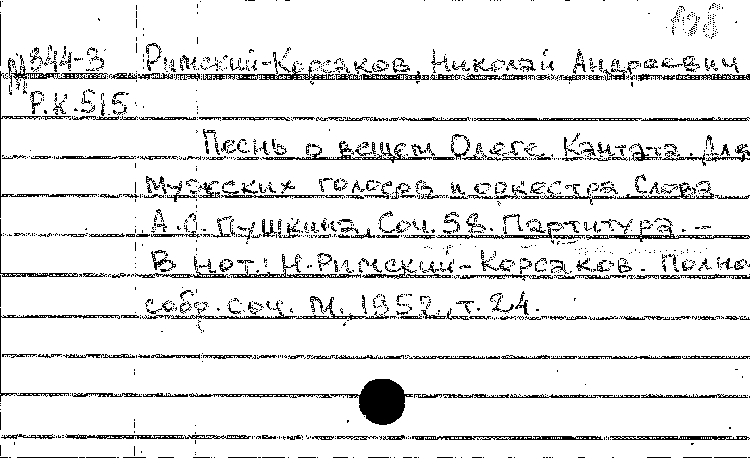 198
М344-3 Римский-Корсаков, Николай Андреевич
Р.К.515
Песнь о вещем Олеге. Кантата. Для
мужских голосов и оркестра. Слова
А.С. Пушкина, Соч. 58. Партитура. -
В нот.: Н. Римский-Корсаков. Полно
собр. соч. М., 1952, т. 24.